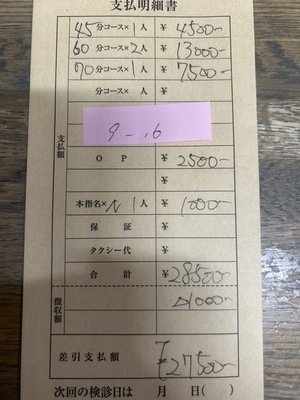 支払明細書
45分コース×1人 ¥4500-
60分コース×2人 ¥13000-
70分コース×1人 ¥7500-
分コース× 人 ¥
9-.6
支払額
OP ¥2500-
¥
本指名×N1人 ¥1000-
保証 ¥
タクシー代 ¥
合計 ¥28500-
徴収額
△1000-
差引支払額 ¥27500-
次回の検診日は 月 日( )